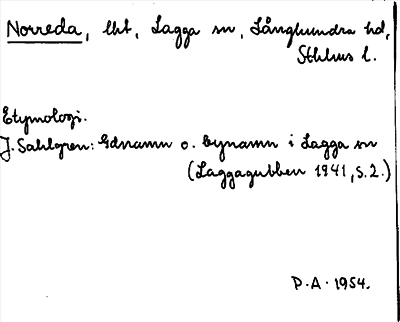 Norreda, lht, Lagga sn, Långhundra hd,
Sthlms l.
Etymologi.
J. Sahlgren: Gdnamn o. bynamn i Lagga sn
(Laggagubben 1941, S. 2.)
P.A. 1954.